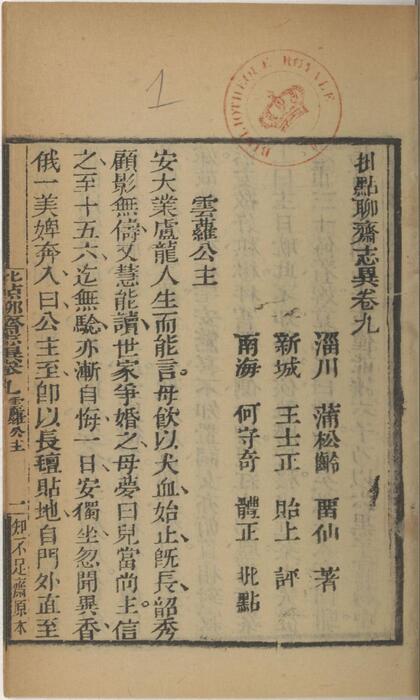 批點聊齋志異卷九
淄川 蒲松齡 畱仙 著
新城 王士正 貽上 評
南海 何守奇 體正 批點
雲蘿公主
安大業盧龍人生而能言母飲以犬血始止旣長韶秀
顧影無儔又慧能讀世家爭婚之母夢曰兒當尚主信
之至十五六迄無驗亦漸自悔一日安獨坐忽聞異香
俄一美婢奔入曰公主至卽以長氊貼地自門外直至
批點聊齋志異卷九 雲蘿公主 一 知不足齋原本
1
BIBLIOTHEQUE ROYALE